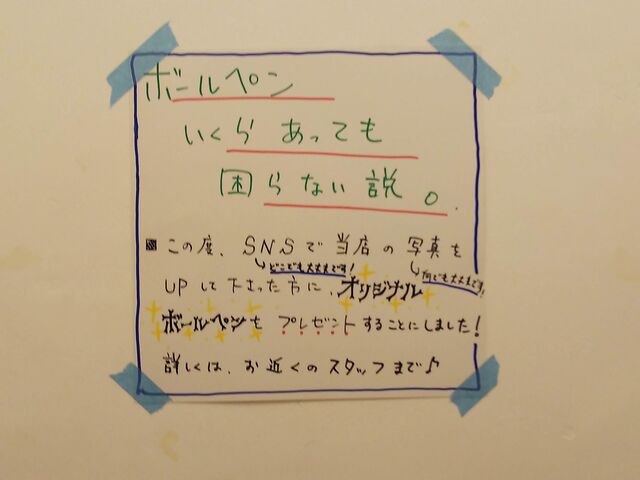 ボールペン
いくらあっても
困らない説。
この度、SNSで当店の写真を
どこでも大丈夫です!
何でも大丈夫です!
UPして下さった方に、オリジナル
ボールペンをプレゼントすることにしました!
詳しくは、お近くのスタッフまで♪